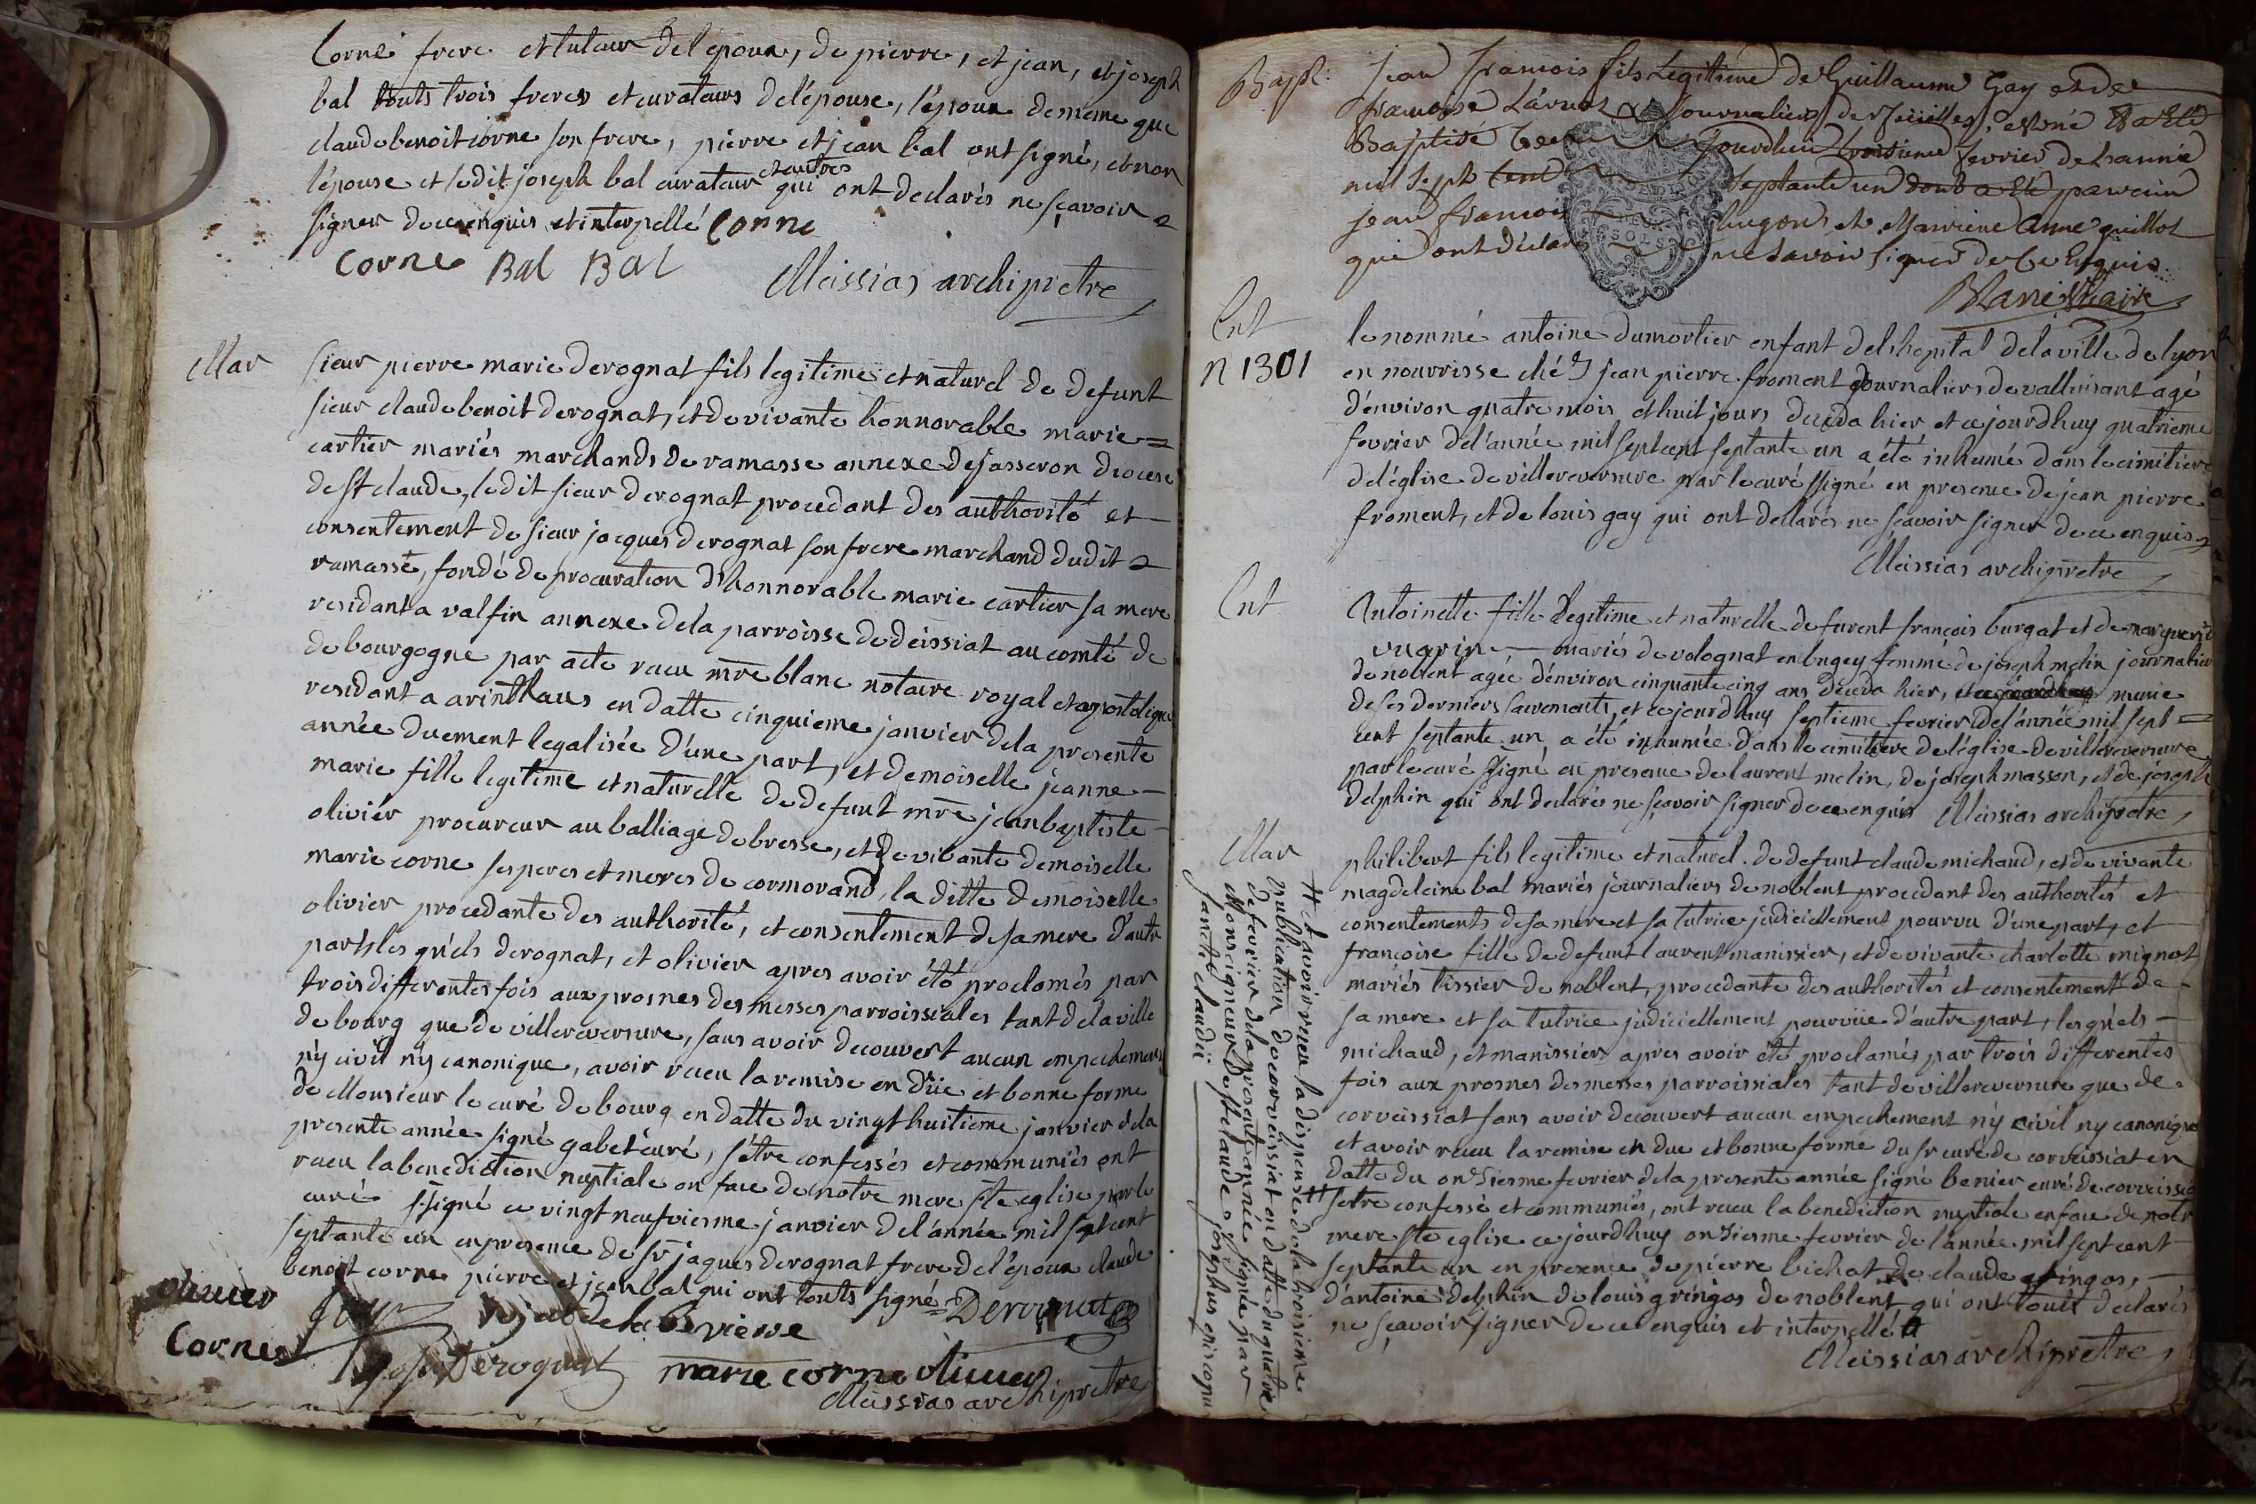 Corne frere et tuteur del epoux, de pierre, et jean, et joseph
bal touts trois freres et curateurs de l'épouse, l'époux de meme que
claude benoit corne son frere, pierre et jean bal ont signé, et non
l'épouse et le dit joseph bal curateur et autres qui ont declarés ne sçavoir
signer de ce enquis et interpellé Corne
Corne Bal Bal
Meissias archipretre
Mar
sieur pierre marie derognat fils legitime et naturel de defunt
sieur claude benoit derognat, et de vivante honnorable marie
cartier mariés marchands de ramasse annexe de jasseron diocese
de st claude, le dit sieur derognat procedant des authorité et
consentement de sieur jacques derognat son frere marchand dudit
ramasse, fondé de procuration d'honnorable marie cartier sa mere
residant a valfin annexe dela parroisse de deissiat au comté de
de bourgogne par acte recu mre blanc notaire royal et apostolique
residant a arinthaus en datte cinquieme janvier dela presente
année duement legalisée d'une part, et demoiselle jeanne
marie fille legitime et naturelle de defunt mre jean baptiste
olivier procureur au balliage de bresse, et de vivante demoiselle
marie corne ses peres et meres de cormorand, la ditte demoiselle
olivier procedante des authorité, et consentement de sa mere d'autre
part, les quels derognat, et olivier apres avoir été proclamés par
trois differentes fois aux prosnes des messes parroissiales tant dela ville
de bourg que de villereversure, sans avoir decouvert aucun empechement
ny civil ny canonique, avoir recu la remise en düe et bonne forme
de Monsieur le curé de bourg en datte du vingt huitieme janvier dela
presente année signé gabet curé, s'étre confessés et communiés ont
recu la benediction nuptiale en face de notre mere ste eglise par le
curé ssigné ce vingt neufvieme janvier del'année mil sept cent
septante un en presence de sr jaques derognat frere de l'époux claude
benoit corne pierre et jean bal qui ont touts signé Derognat
olivier
Corne
Derognat marie corne olivier
Meissias archipretre
Bapt.
Jean François fils Legitime de Guillaume Gay et de
françoise journaliers de est né a été
Baptisé jourdhui troisieme fevrier de L'année
mil sept cent septante un dont a été parrain
jean françois et Marriene Anne guillot
qui ont déclaré ne savoir signer de Ce Enquis
Vicaire
Ent
n 1301
le nommé antoine dumortier enfant del hopital dela ville de lyon
en nourrisse ché jean pierre froment journaliers de vallinsant agé
d'environ quatre mois et huit jours deceda hier et ce jourdhuy quatrieme
fevrier del'année mil sept cent septante un a été inhumé dans le cimitiere
de l'église de villereversure par le curé ssigné en presence de jean pierre
froment, et de louis gay qui ont declarés ne sçavoir signer de ce enquis
Meissias archipretre
Ent
Antoinette fille legitime et naturelle de furent françois burgat et de marguerite
mariés de volognat en bugey femme de joseph melin journalier
de noblent agée d'environ cinquante cinq ans deceda hier, munie
de ses derniers sacrements, et ce jourdhuy septieme fevrier del'année mil sept
cent septante un a été inhumée dans le cimitiere de l'église de villereversure
par le curé ssigné en presence de laurent melin, de joseph masson, et de joseph
delphin qui ont declarés ne sçavoir signer de ce enquis Meissias archipretre
Mar
philibert fils legitime et naturel de defunt claude michaud, et de vivante
magdeleine bal mariés journaliers de noblent procedant des authorités et
consentements de sa mere et sa tutrice judiciellement pourvu d'une part, et
françoise fille de defunt laurent manissier, et de vivante charlotte mignot
mariés tissier de noblent, procedante des authorités et consentement de
sa mere et sa tutrice judiciellement pourvüe d'autre part, les quels
michaud, et manissier apres avoir été proclamés par trois differentes
fois aux prosnes des messes parroissiales tant de villereversure que de
corveissiat sans avoir decouvert aucun empechement ny civil ny canonique
et avoir recu la remise en due et bonne forme du sr curé de corveissiat en
datte du onzieme fevrier dela presente année signé benier curé de corveissiat
# s'étre confessé et communiés, ont recu la benediction nuptiale en face de notre
mere ste eglise ce jourdhuy onzieme fevrier de l'année mil sept cent
septante un en presence de pierre bichat de claude gringos,
d'antoine delphin de louis gringos de noblent qui ont touts declarés
ne sçavoir signer de ce enquis et interpellé
Meissias archipretre
# et avoir recu la dispense de la troisieme
publication de corveissiat en datte du quatre
de fevrier dela presente année signée par
Monseigneur de st claude josephus episcopus
sancti claudii